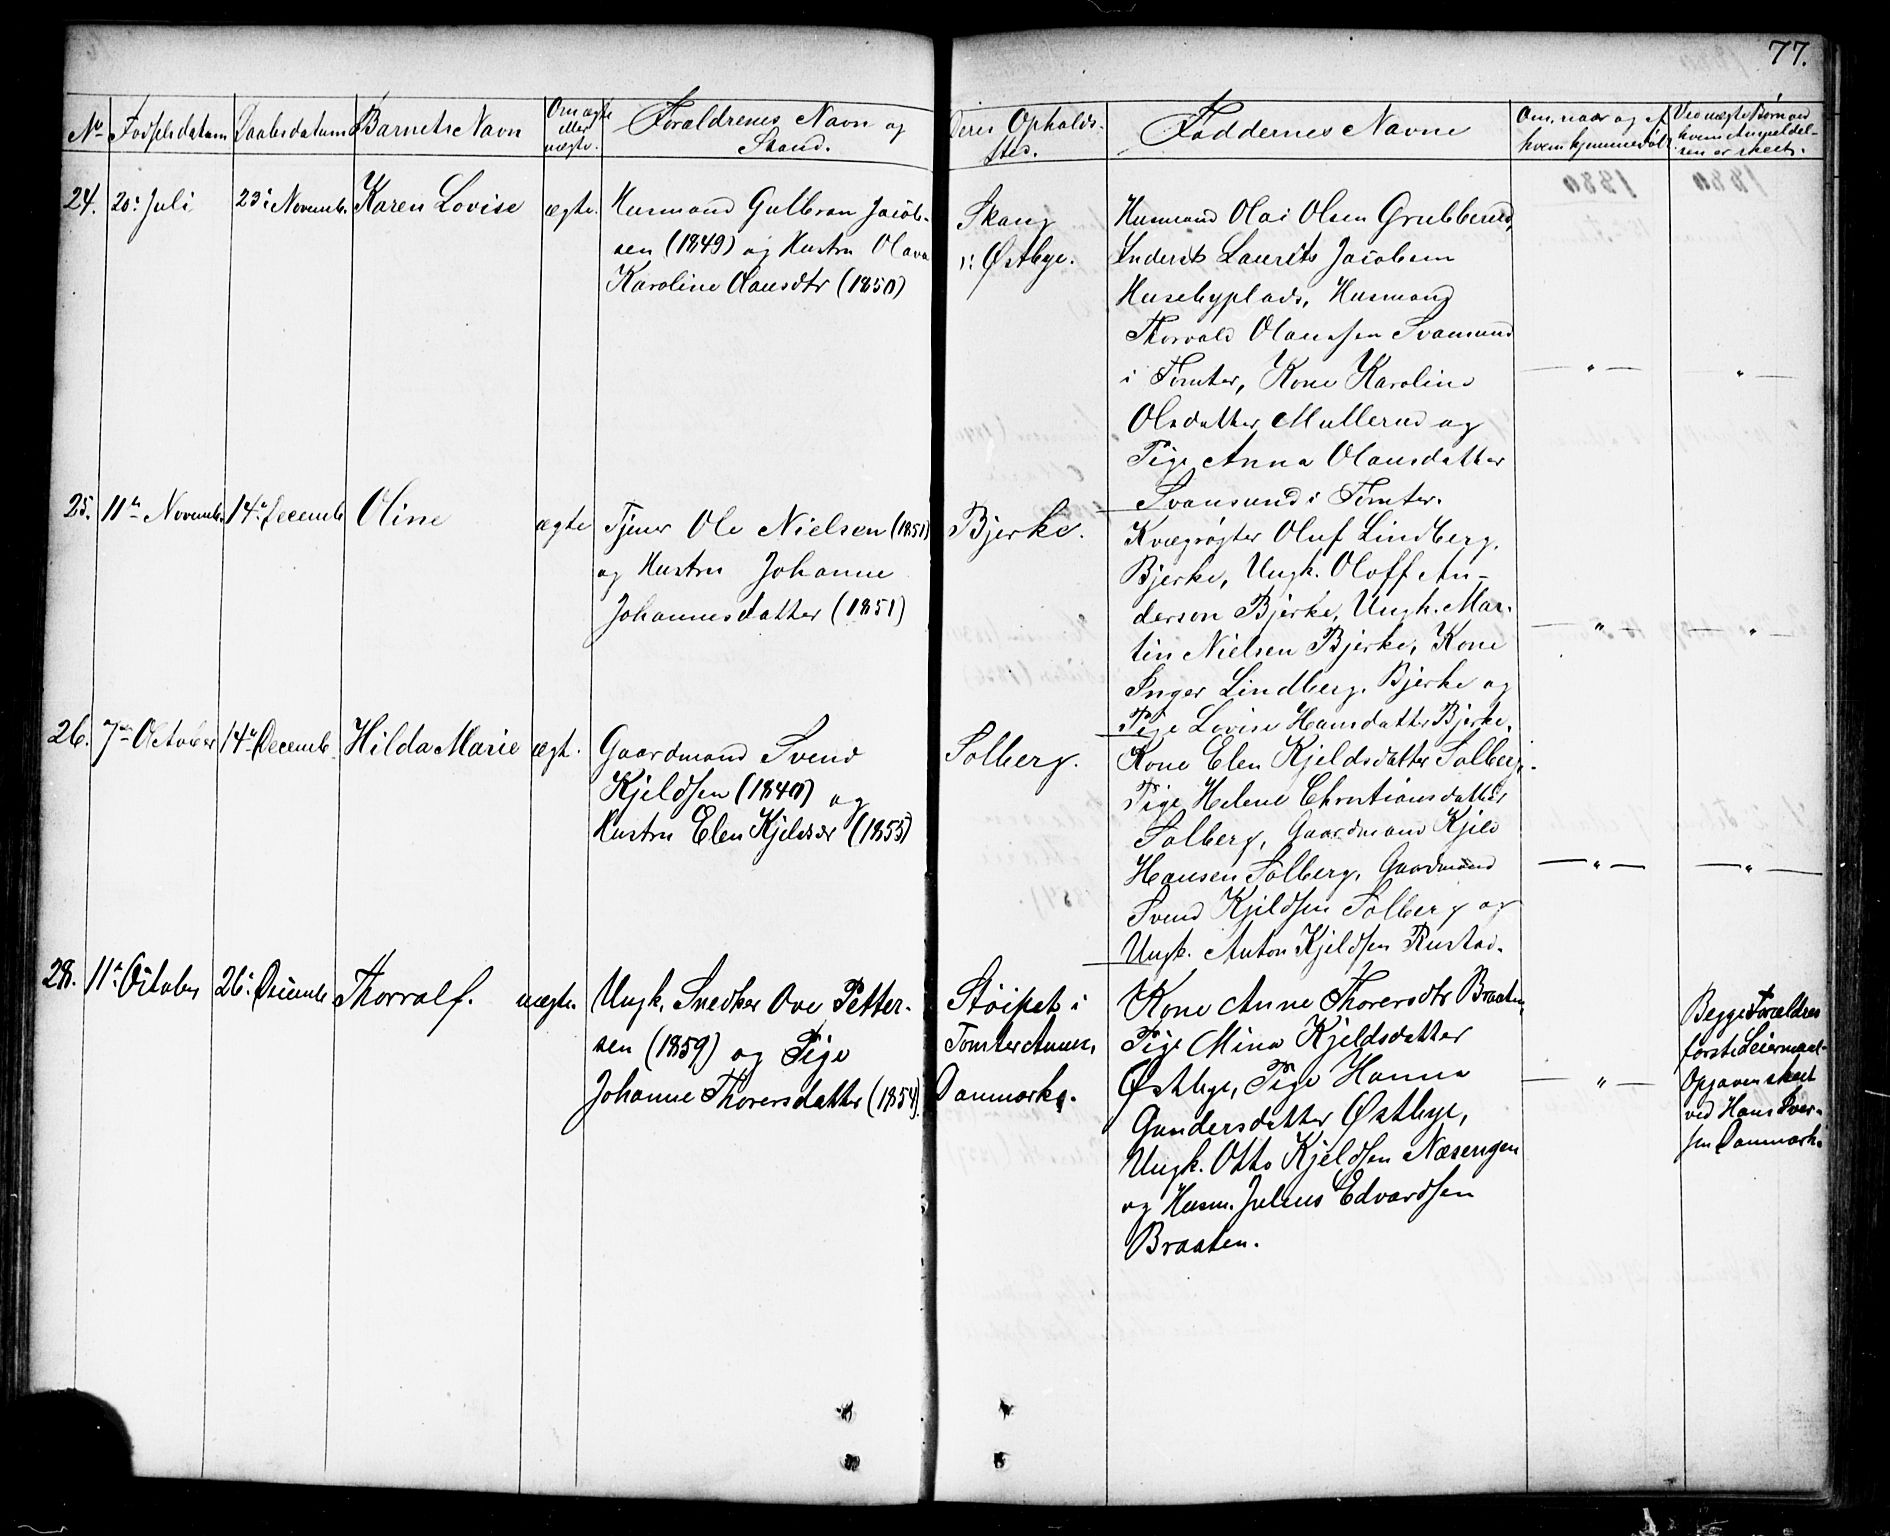 77.
No Fødselsdatum Daabsdatum Barnets Navn Om ægte eller uægte. Forældrenes Navn og Stand. Deres Opholds-sted. Faddernes Navne Om, naar og af hvem hjemmedøbt Ved uægte Børn ved hvem Anmeldel-sen er skeet.
24. 20de Juli 23de Novemb. Karen Lovise ægte. Husmand Gulbran Jacob-
sen (1849) og Hustru Olava
Karoline Olausdtr (1850)
Skaug
i Østbye.
Husmand Olai Olsen Grubberud,
Inderst Laurits Jacobsen
Husebyplads, Husmand
Thorvald Olaussen Svansund
i Tomter, Kone Karoline
Olsdatter Mullerud og
Pige Anna Olausdatter
Svansund i Tomter.
— „ — — „ —
25. 11te Novemb. 14de Decemb. Oline ægte Tjener Ole Nielsen (1851)
og Hustru Johanne
Johannesdatter (1851)
Bjerke.
Kvægrøgter Oluf Lindberg,
Bjerke, Ungk. Oloff An-
derson Bjerke, Ungk. Mar-
tin Nielsen Bjerke, Kone
Inger Lindberg, Bjerke og
Pige Lovise Hansdatter Bjerke.
— „ — — „ —
26. 7de October 14de Decemb. Hilda Marie ægt. Gaardmand Svend
Kjeldsen (1840) og
Hustru Elen Kjeldsdr (1855)
Solberg.
Kone Elen Kjeldsdatter Solberg,
Pige Helene Christiansdatter
Solberg, Gaardmand Kjeld
Hansen Solberg, Gaardmand
Svend Kjeldsen Solberg og
Ungk. Anton Kjeldsen Rustad.
— „ — — „ —
28. 11te October 26de Decemb. Thorvalf. uægte. Ungk. Snedker Ove Petter-
sen (1859) og Pige
Johanne Thorersdatter (1854)
Støipet i
Tomter Annex,
Danmark.
Kone Anne Thorersdtr Braaten,
Pige Mina Kjeldsdatter
Østbye, Pige Hanna
Gundersdatter Østbye,
Ungk. Otto Kjeldsen Næsengen
og Husm. Julius Edvardsen
Braaten.
— „ —
Begge Forældres
første Leiermaal.
Opgaven skeet
ved Hans Iver-
sen Danmark.